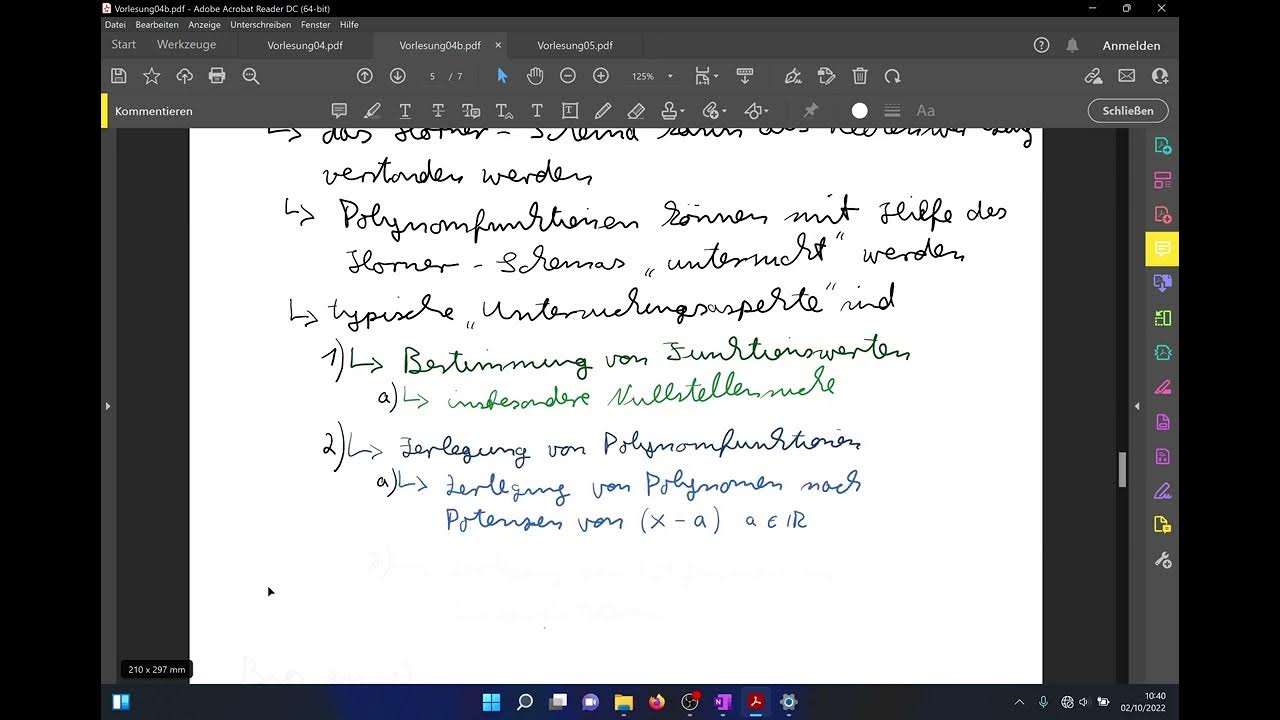 Vorlesung04b.pdf - Adobe Acrobat Reader DC (64-bit)
Datei Bearbeiten Anzeige Unterschreiben Fenster Hilfe
Start Werkzeuge Vorlesung04.pdf Vorlesung04b.pdf × Vorlesung05.pdf Anmelden
5 / 7 125%
Kommentieren Aa Schließen
↳ das Horner-Schema kann als
verstanden werden
↳ Polynomfunktionen können mit Hilfe des
Horner-Schemas „untersucht“ werden
↳ typische „Untersuchungsaspekte“ sind
1) ↳ Bestimmung von Funktionswerten
a) ↳ insbesondere Nullstellensuche
2) ↳ Zerlegung von Polynomfunktionen
a) ↳ Zerlegung von Polynomen nach
Potenzen von (x - a) a ∈ ℝ
210 x 297 mm
10:40
02/10/2022